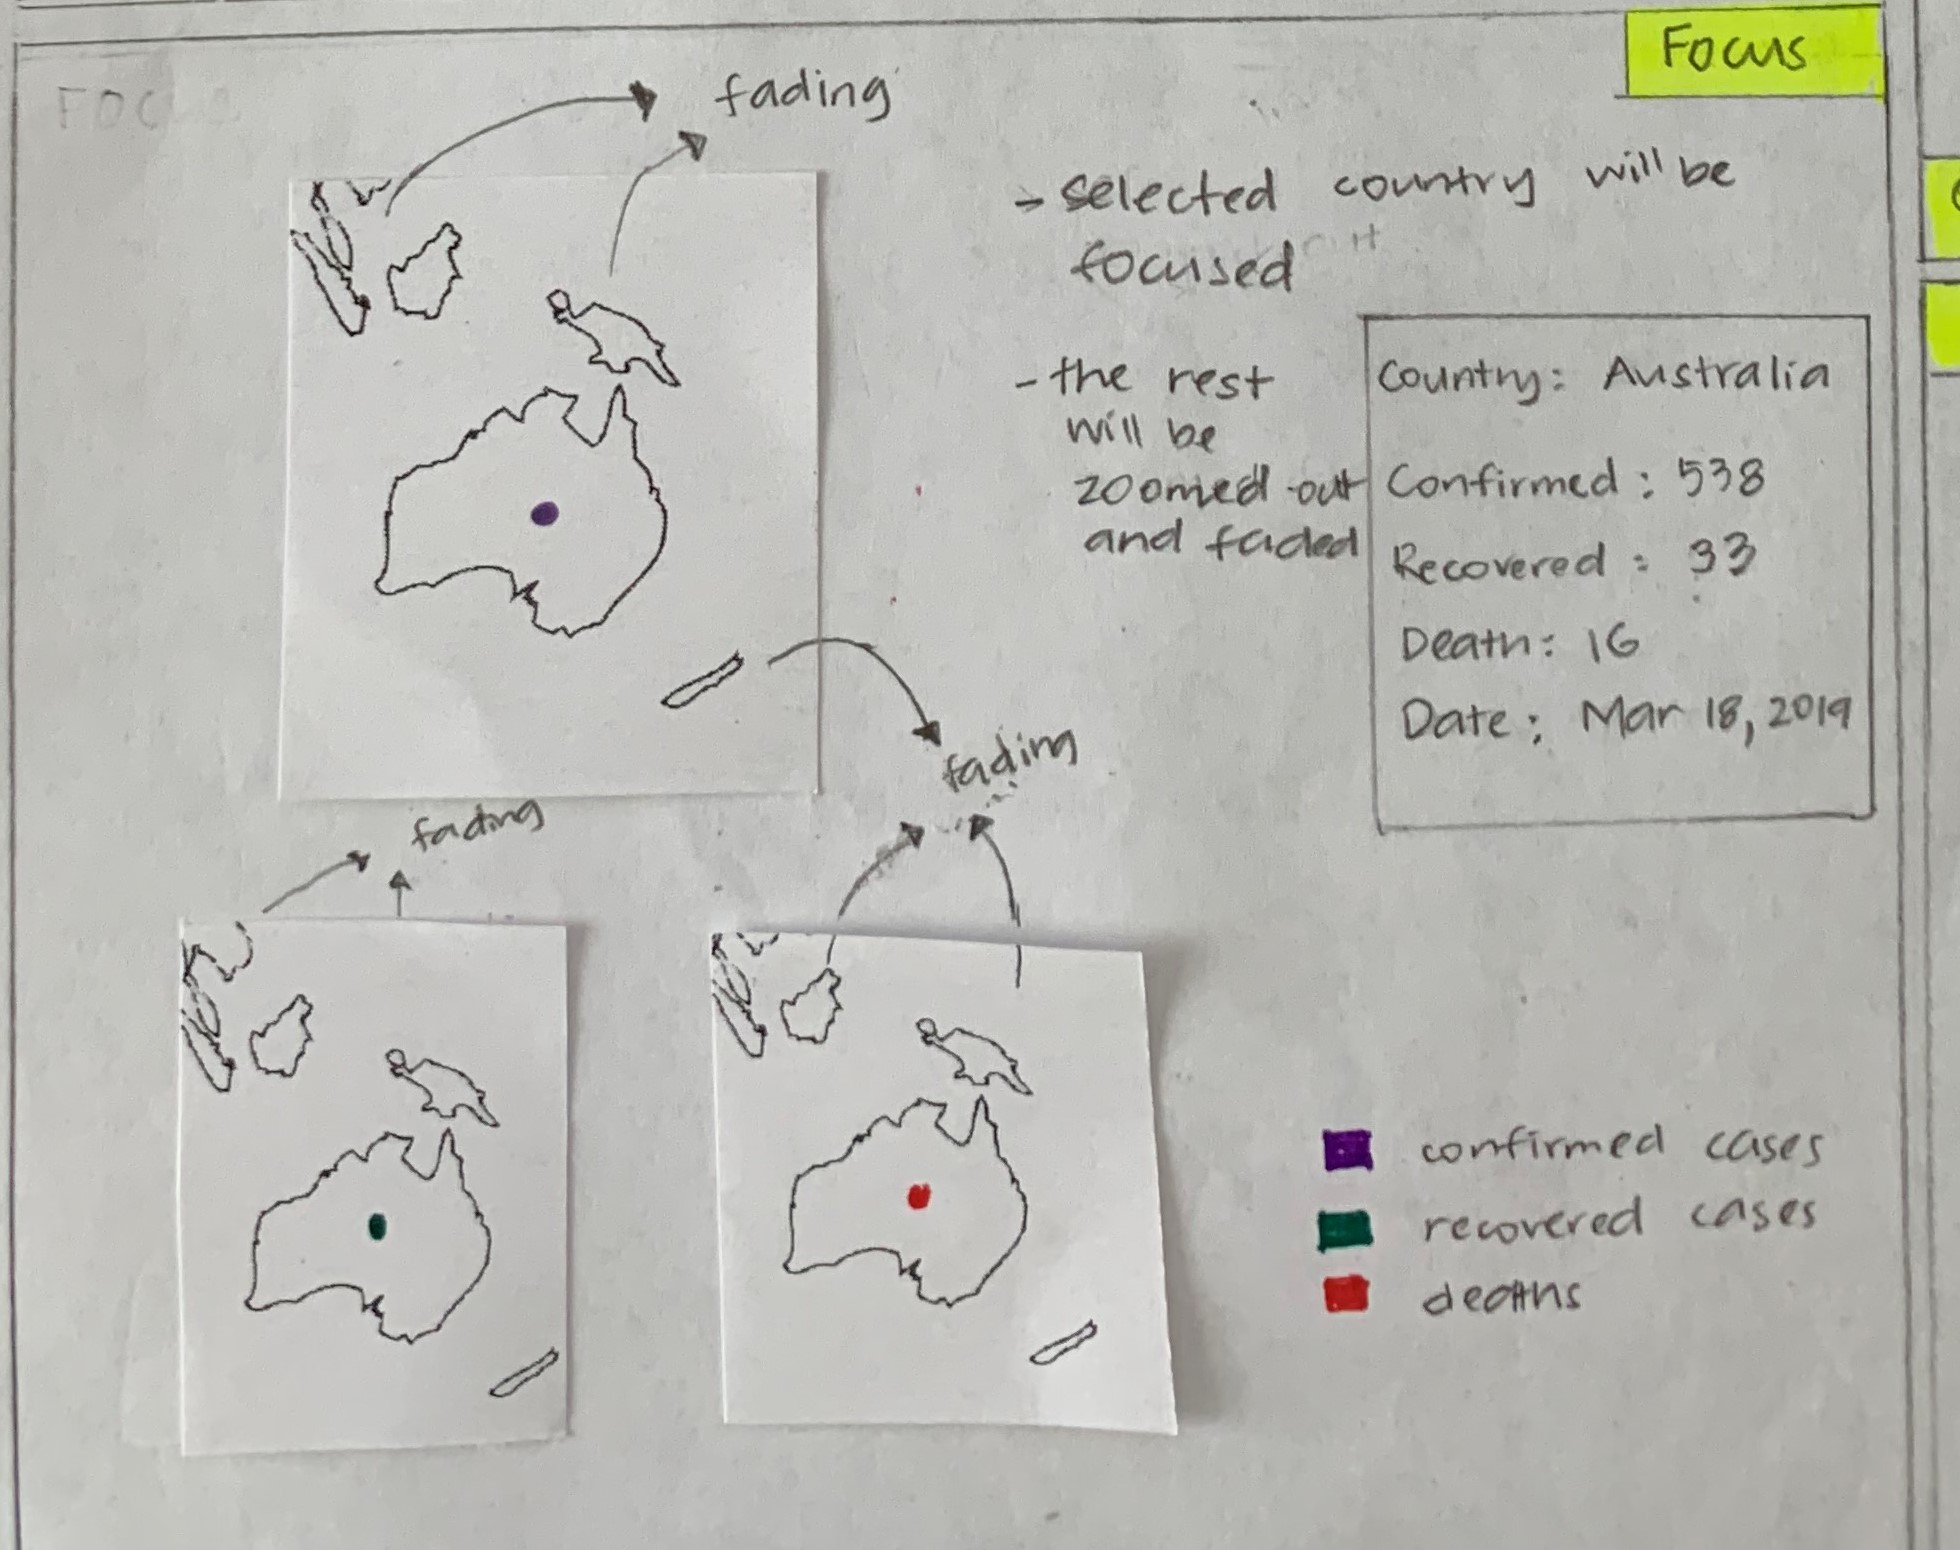 Focus
FOCUS
fading
- selected country will be
focused
- the rest
will be
zoomed out
and faded
Country: Australia
Confirmed: 538
Recovered: 33
Death: 16
Date: Mar 18, 2019
fading
fading
confirmed cases
recovered cases
deaths